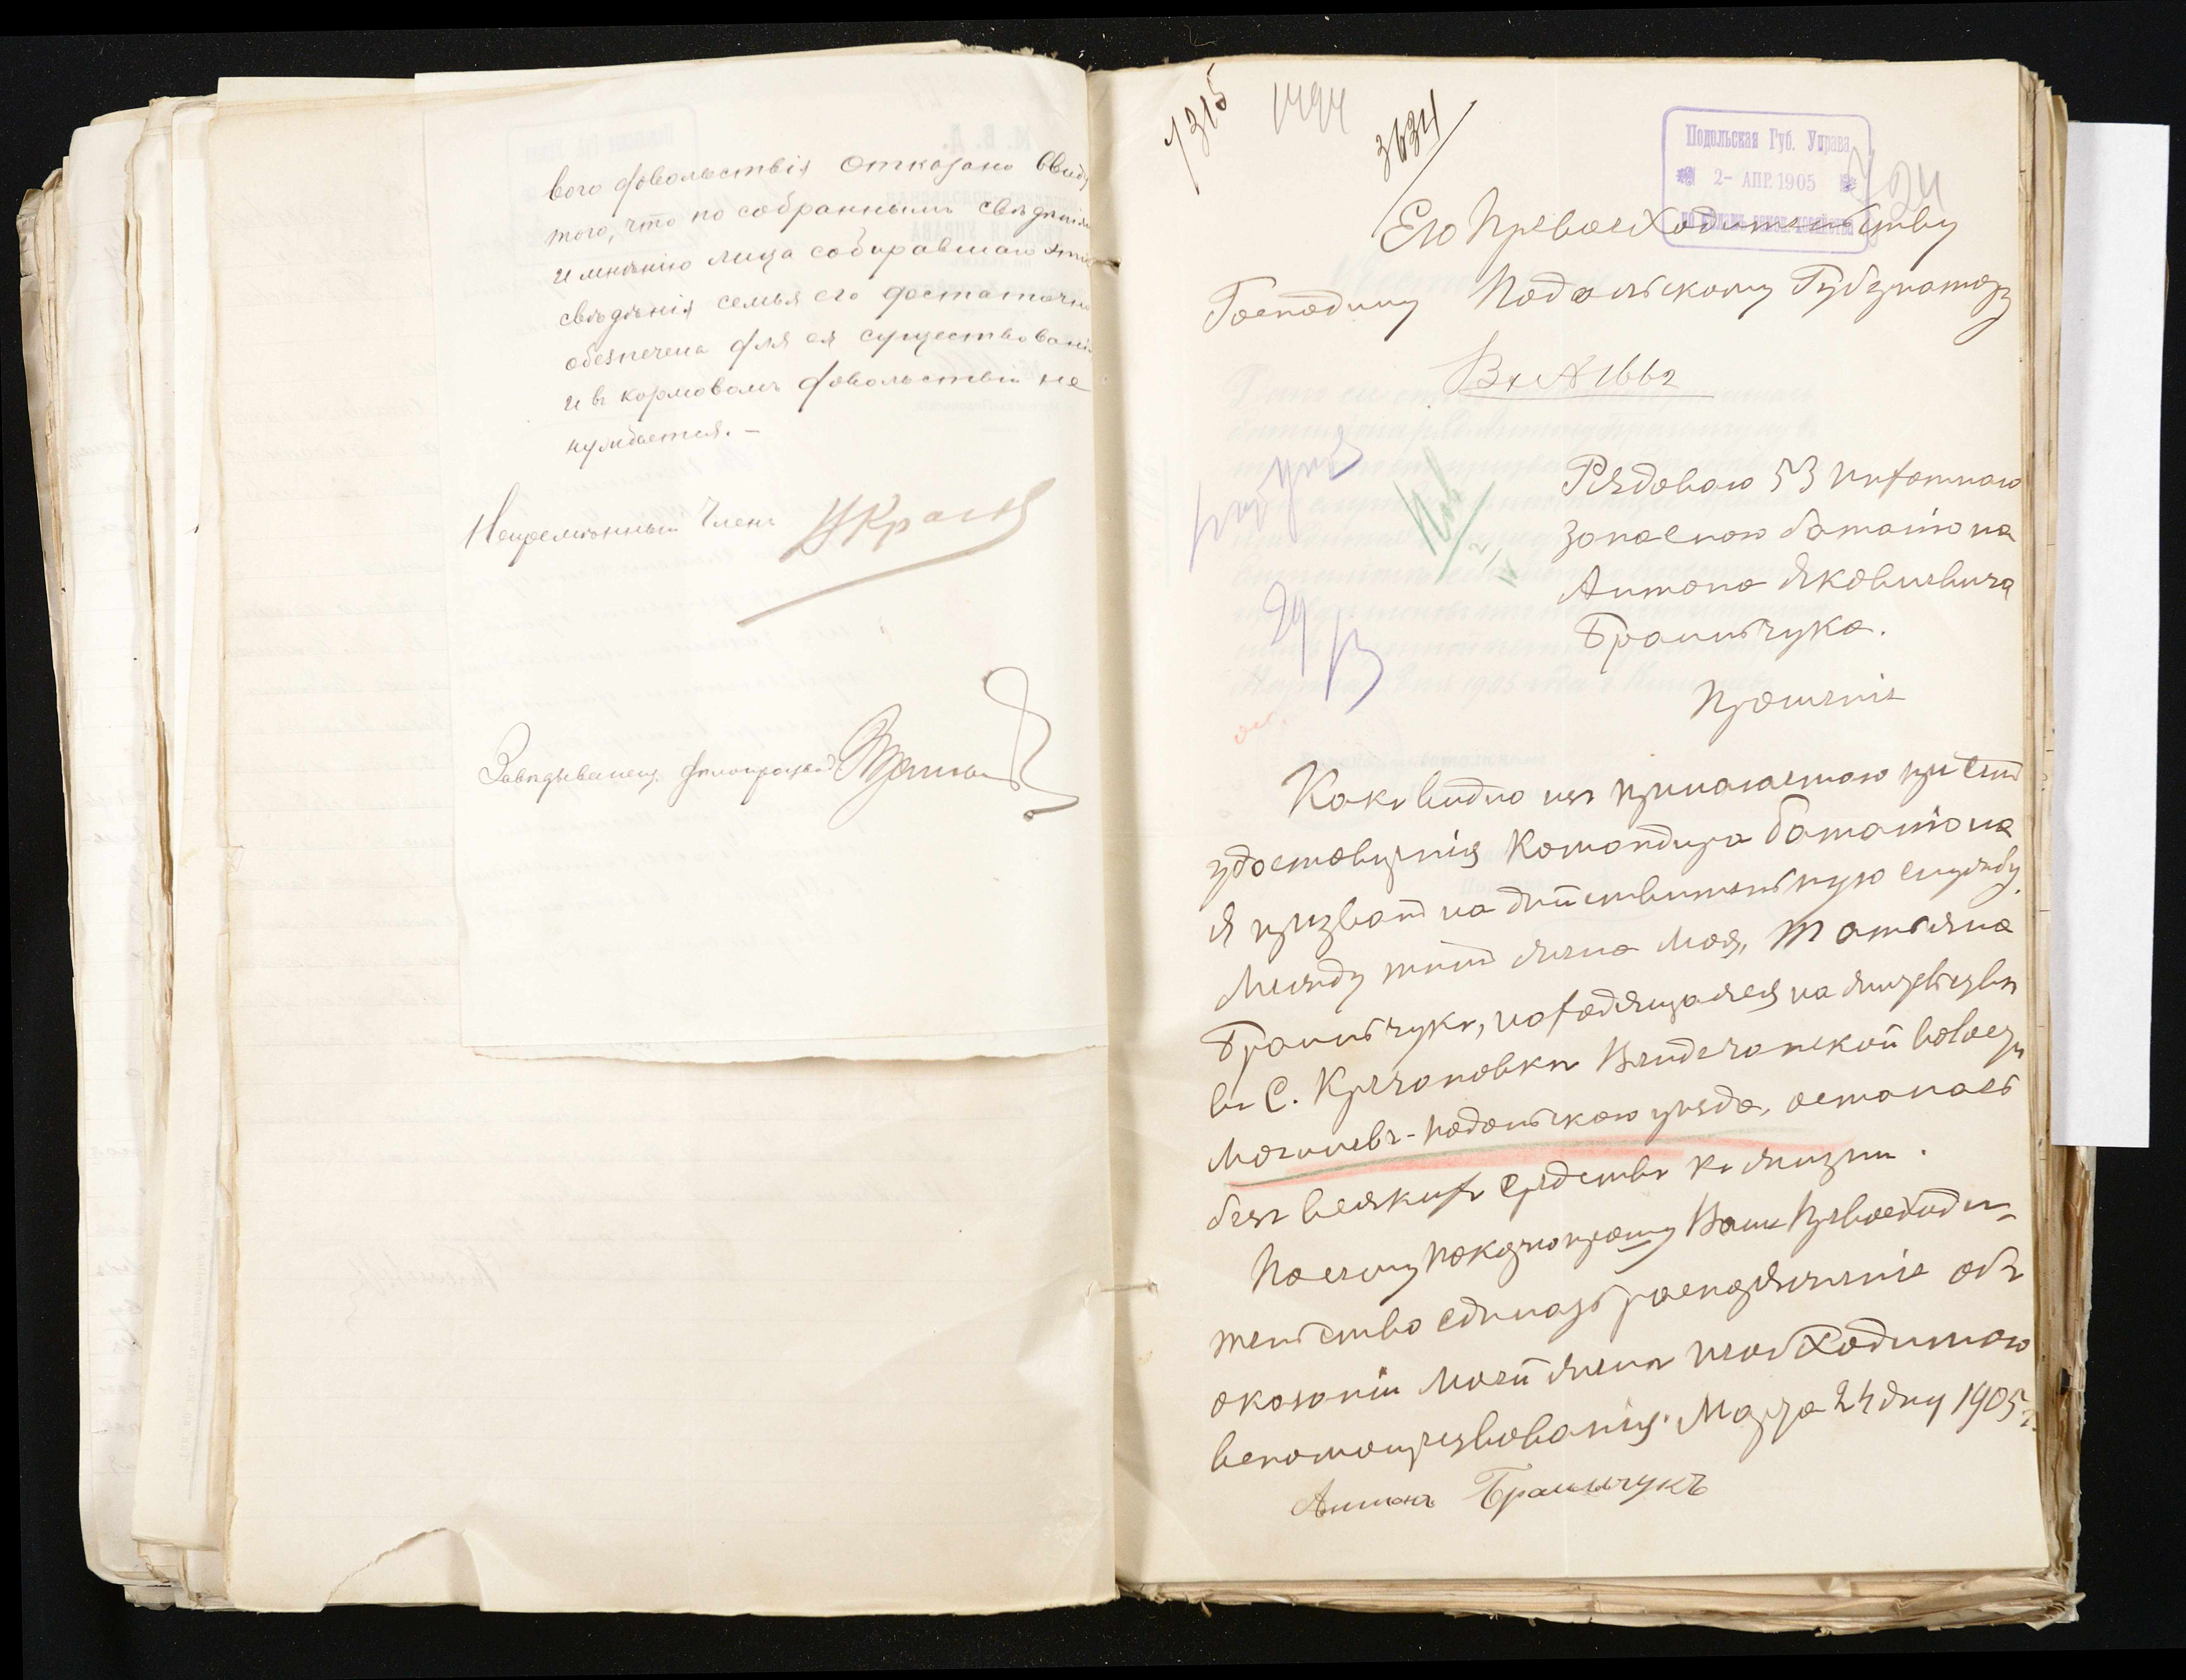 вого довольствія отказано ввиду
того, что по собраннымъ свѣдѣніям
и мнѣнію лица собиравшаго эти
свѣдѣнія семья его достаточно
обезпечена для ея существованія
и въ кормовомъ довольствіи не
нуждается. —
Непремѣнный Членъ
Завѣдывающ. дѣлопроизвод.
7315
1494
3634
Подольская Губ. Управа
2- АПР. 1905
Его Превосходительству
Господину Подольскому Губернатору
Рядового 53 пѣхотнаго
запаснаго баталіона
Антона Яковлевича
Бранльчука.
Прошеніе
Какъ видно изъ прилагаемаго при семъ
удостовѣренія Командира баталіона
я призванъ на дѣйствительную службу.
Между тѣмъ жена моя, Татьяна
Бранльчукъ, находящаяся на жительствѣ
въ С. Кричановкѣ Вендичанской волости
Могилевъ-Подольскаго уѣзда, осталась
безъ всякихъ средствъ къ жизни.
Посему покорно прошу Ваше Превосходи-
тельство сдѣлать распоряженіе объ
оказаніи моей женѣ необходимаго
вспомоществованія. Марта 24 дня 1905 г.
Антонъ